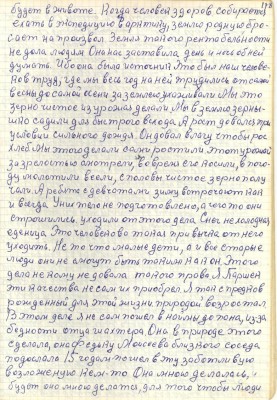 будет в животе. Когда человек здоров собирается
ехать в экспедицию в арктику землю родную бро-
сает на произвол. Земля такого рентабельности
не дала людям. Она нас заставила день и ночь об ней
думать. Ибо она была источник. Это был наш челове-
ков труд, где мы весь год на ней трудились от самой
весны до самой осени за землею ухаживали. Мы это
зерно чистое из урожая делали. Мы в землю зерны-
шко садили для быстрого всхода. А рост давался при
условии сильного дождя. Он давал влагу чтобы рос
хлеб. Мы этого делали сами ростили. Этот урожай
за зрелостью смотрели, вовремя его косили, в пого-
ду молотили веяли, столовы чистое зерно полу-
чали. А ребяте с девчатами зиму встречают как
и всегда. У них тело не подготовлено, а чего то они
страшились, уходили от этого дела. Снег не холодная
еденица. Это человеково такая привычка от него
уходить. Не то что малые дети, а и все старые
люди они не смогут быть такими как он. Этого
дела не кому не давала такого права. Я Паршек
эти качества не сам их приобрел. Я так с предков
рожденный для этой жизни природой возростал
В этом деле я не сам пошел в наймы до пана, из за
бедности отца шахтера. Она в природе этого
сделала, она Федьку Москаева близкого соседа
подослала. 15 годам пошел в эту заботливую
возложенную кем-то. Она мною делалась,
будет оно мною делать, для того чтобы люди